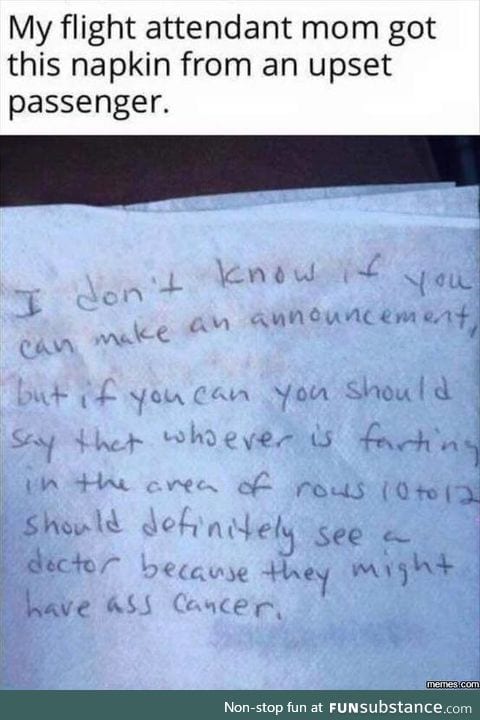 My flight attendant mom got
this napkin from an upset
passenger.
I don't know if you
can make an announcement,
but if you can you should
say that whoever is farting
in the area of rows 10 to 12
should definitely see a
doctor because they might
have ass cancer.
memes.com
Non-stop fun at FUNsubstance.com